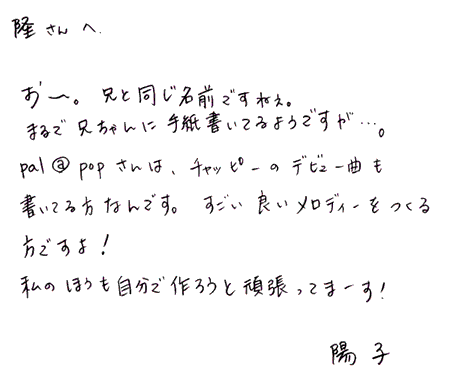 隆さんへ.
お〜。兄と同じ名前ですねぇ。
まるで兄ちゃんに手紙書いてるようですが…。
pal@popさんは、チャッピーのデビュー曲も
書いてる方なんです。すごい良いメロディーをつくる
方ですよ!
私のほうも自分で作ろうと頑張ってまーす!
陽子